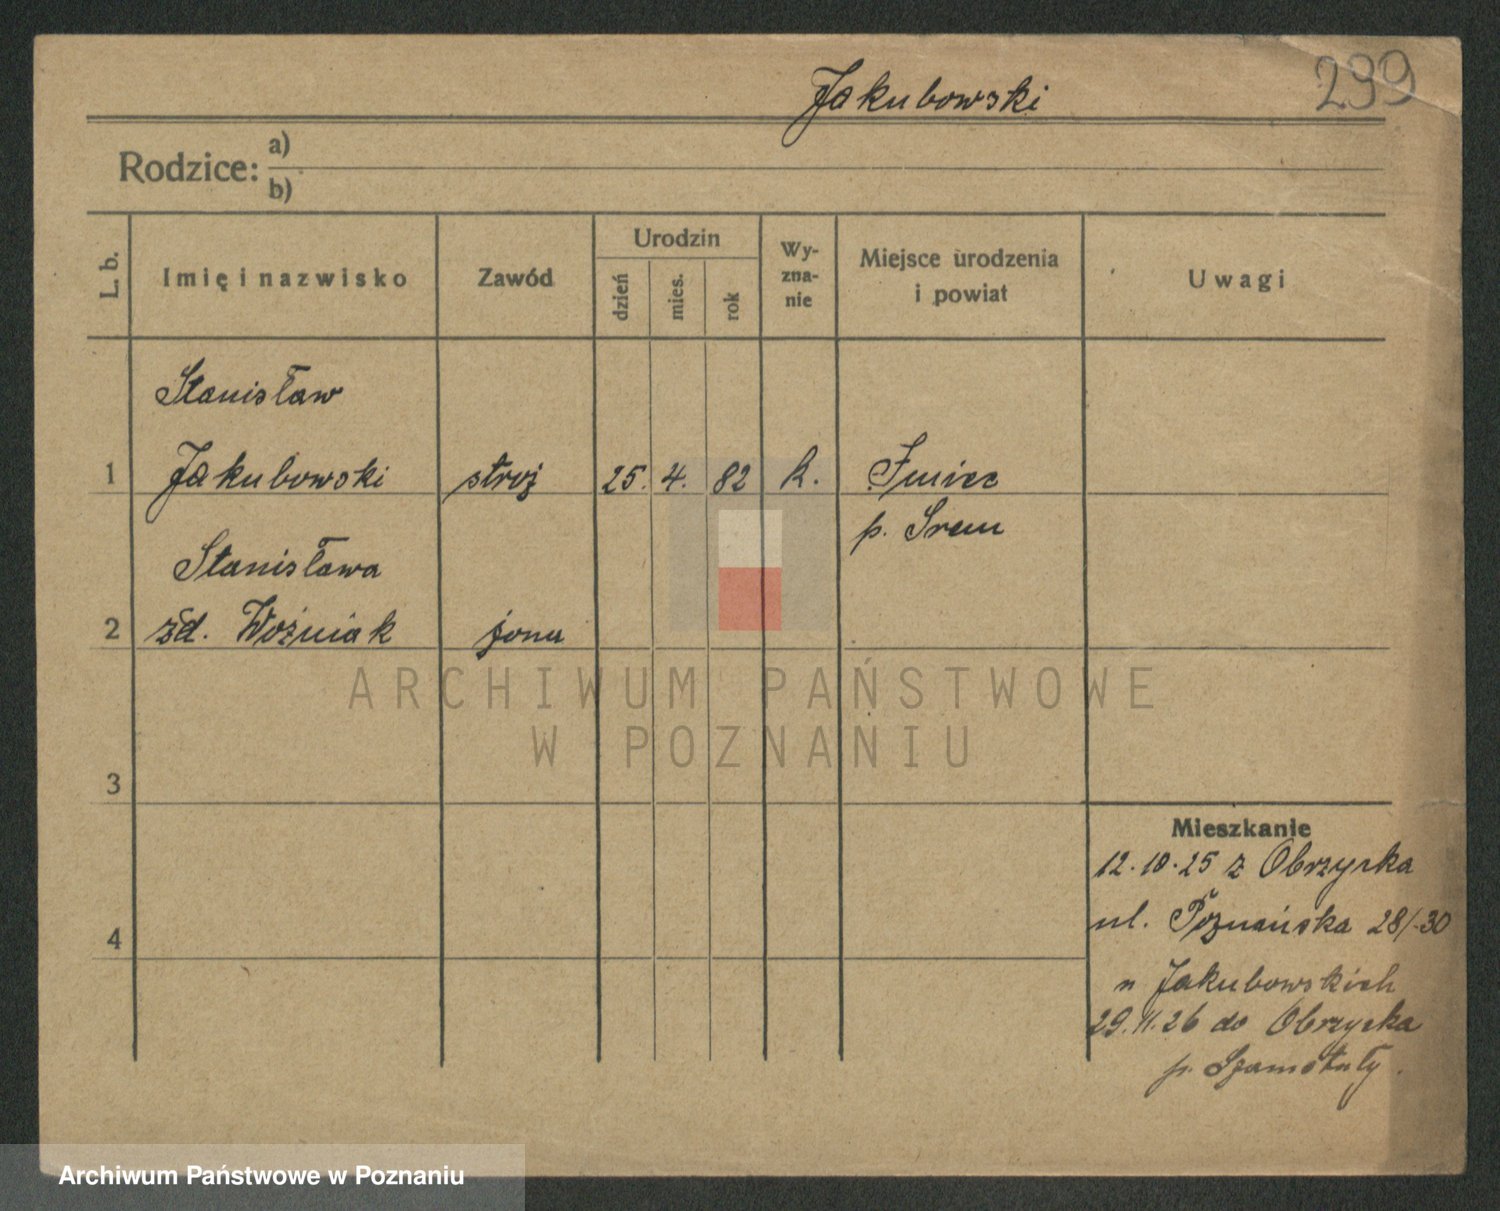 Jakubowski
299
Rodzice: a)
b)
L. b.
Imię i nazwisko
Zawód
Urodzin
dzień
mies.
rok
Wy-
zna-
nie
Miejsce urodzenia
i powiat
Uwagi
Stanisław
1 Jakubowski stróż 25. 4. 82 k.
p. Śrem
Stanisława
2 zd. Woźniak żona
ARCHIWUM PAŃSTWOWE
W POZNANIU
3
4
Mieszkanie
12.10.25 z Obrzycka
ul. Poznańska 28/30
u Jakubowskich
29.11.26 do Obrzycka
p. Szamotuły.
Archiwum Państwowe w Poznaniu